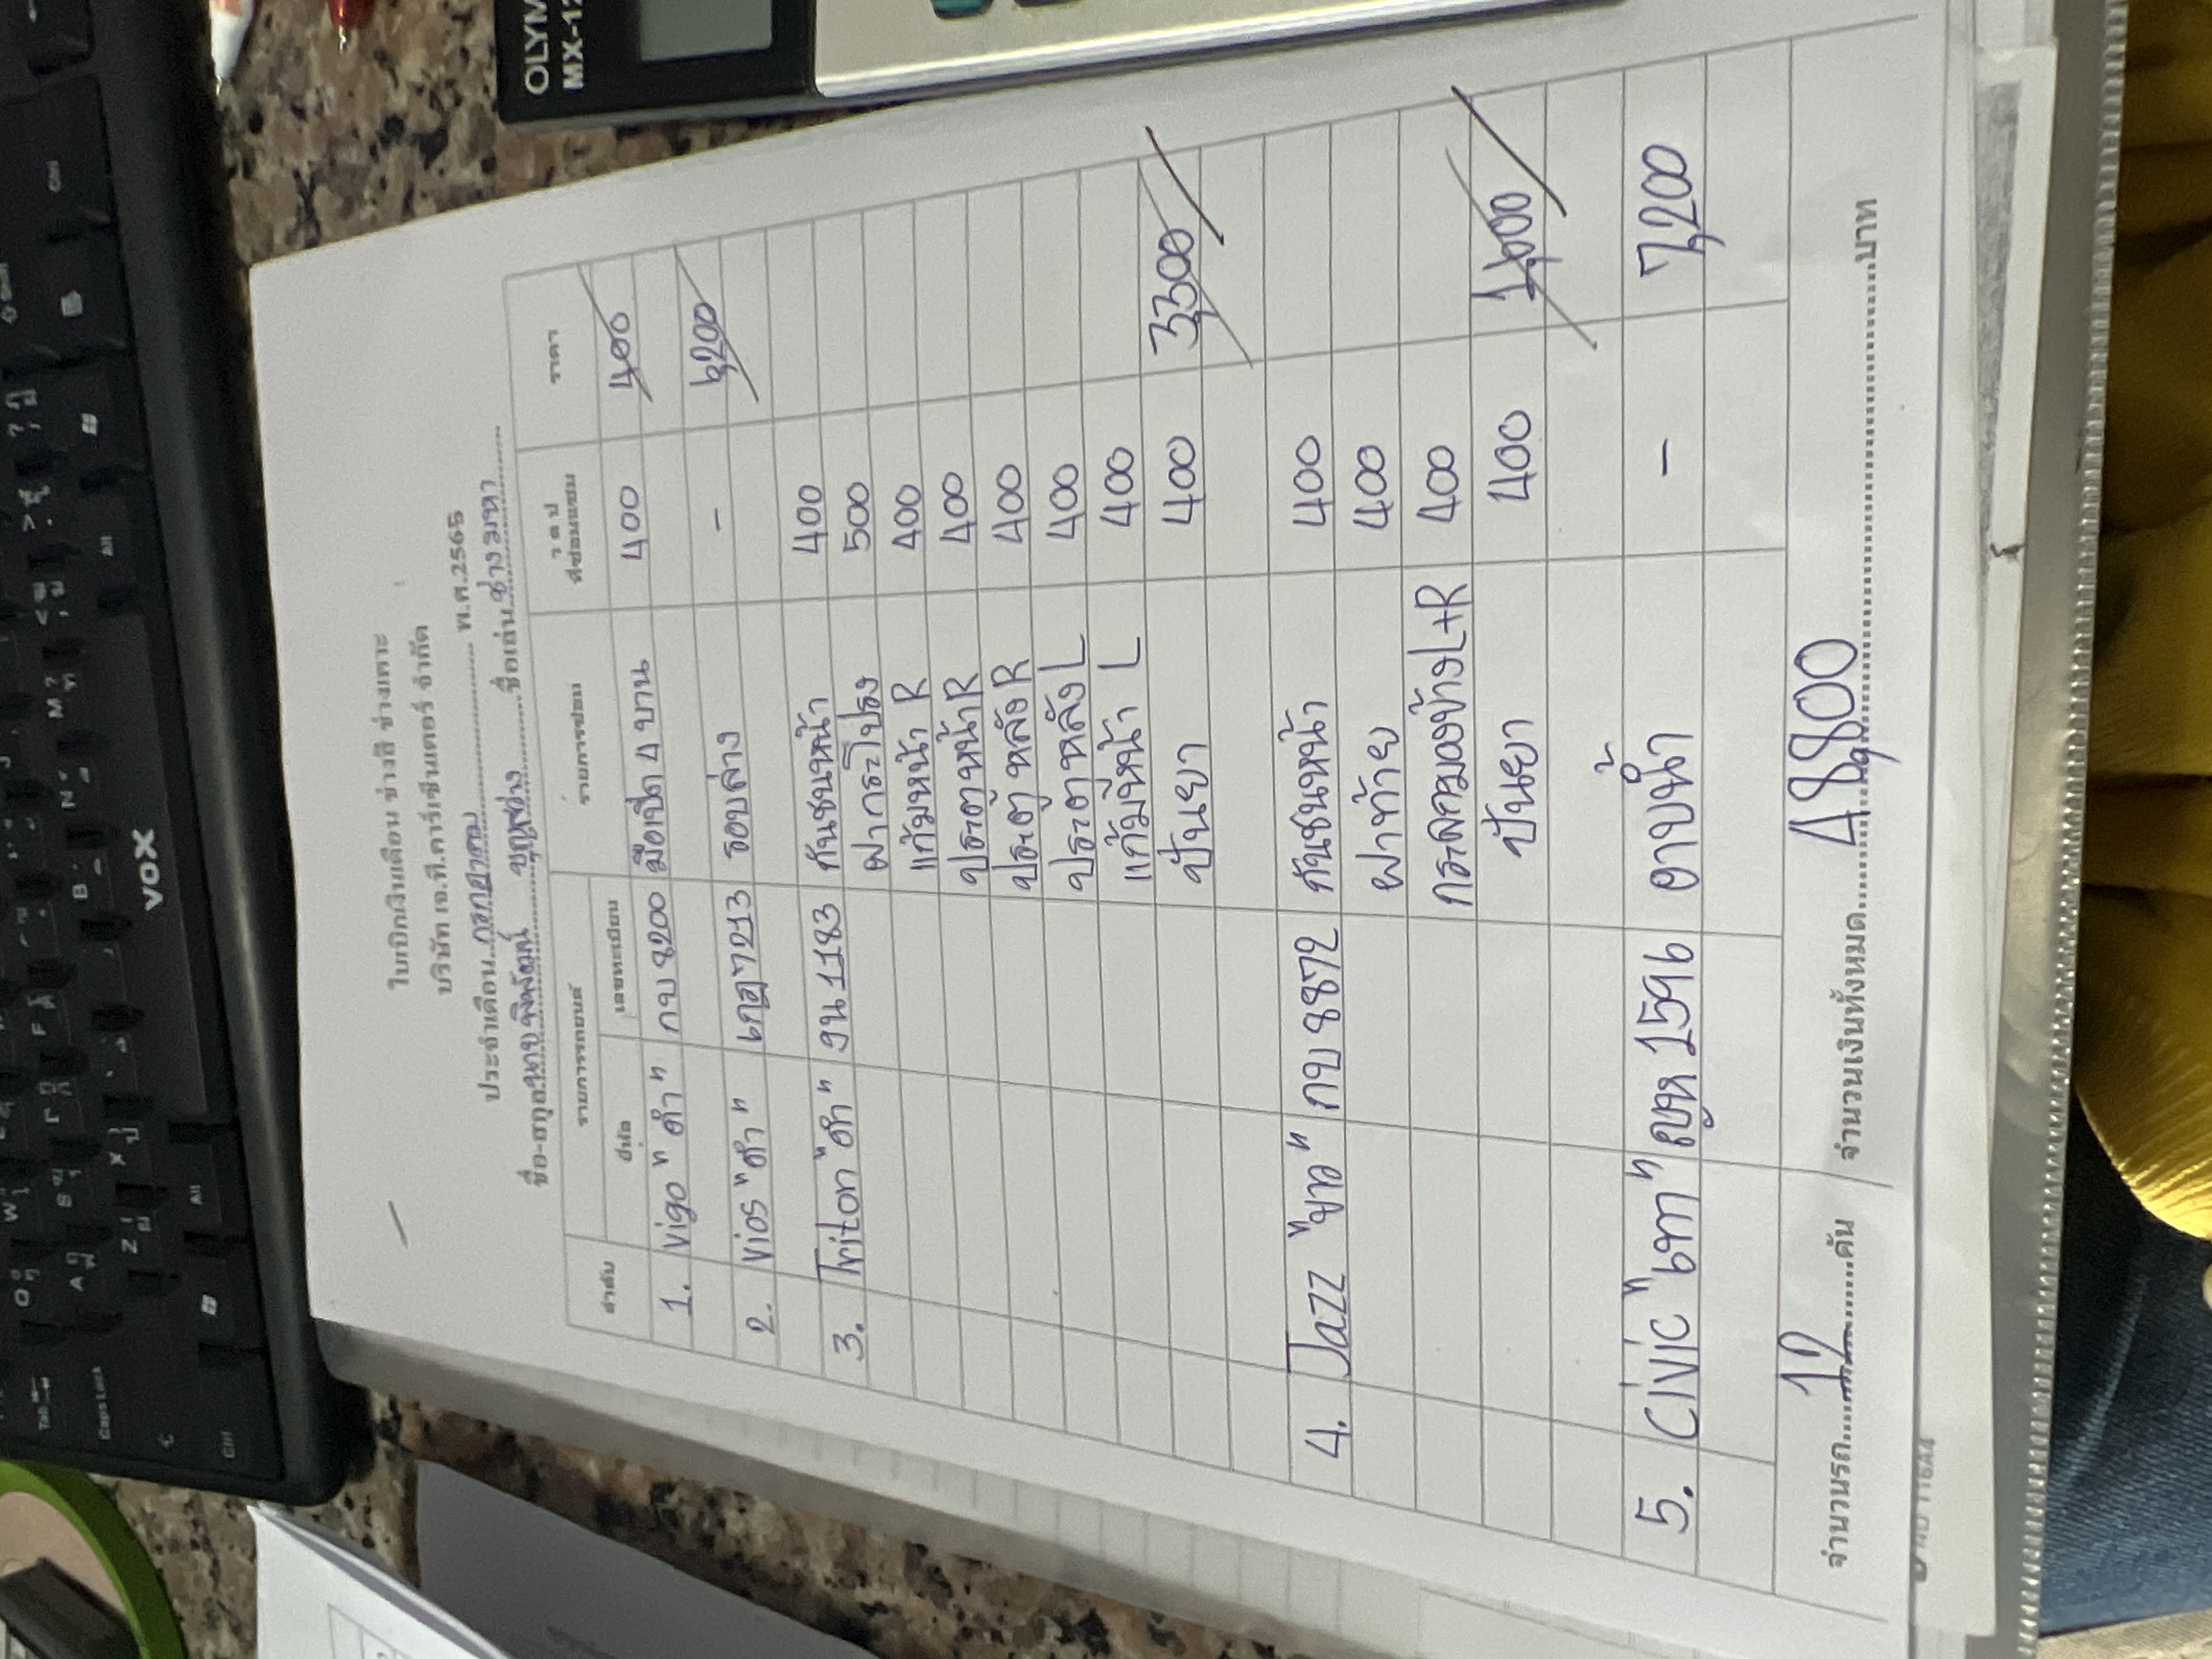 ใบเบิกเงินเดือน ช่างสี ช่างเคาะ
บริษัท เอ.ที.คาร์เซ็นเตอร์ จำกัด
ประจำเดือน กรกฎาคม พ.ศ.2565
ชื่อ-สกุล นาย ชื่อเล่น ช่างมหา
ลำดับ รายการรถยนต์ รายการซ่อม ว ด ป ที่ซ่อมแซม ราคา
ยี่ห้อ เลขทะเบียน
1. Vigo "ดำ" กบ 8200 มือเปิด 4 บาน 400 400
2. Vios "ดำ" 7213 รอบล่าง - 6,200
3. Triton "ดำ" งน 1183 กันชนหน้า 400
ฝากระโปรง 500
แก้มหน้า R 400
ประตูหน้า R 400
ประตูหลัง R 400
ประตูหลัง L 400
แก้มหน้า L 400
ปั้นยา 400 3,300
4. Jazz "ขาว" กบ 8872 กันชนหน้า 400
ฝาท้าย 400
L+R 400
ปั้นยา 400 1,600
5. Civic "เทา" 1596 อาบน้ำ - 7,200
จำนวนรถ 12 คัน จำนวนเงินทั้งหมด 48,800 บาท
OLYM
MX-12
VOX
Tab
Caps Lock
Ctrl
Alt